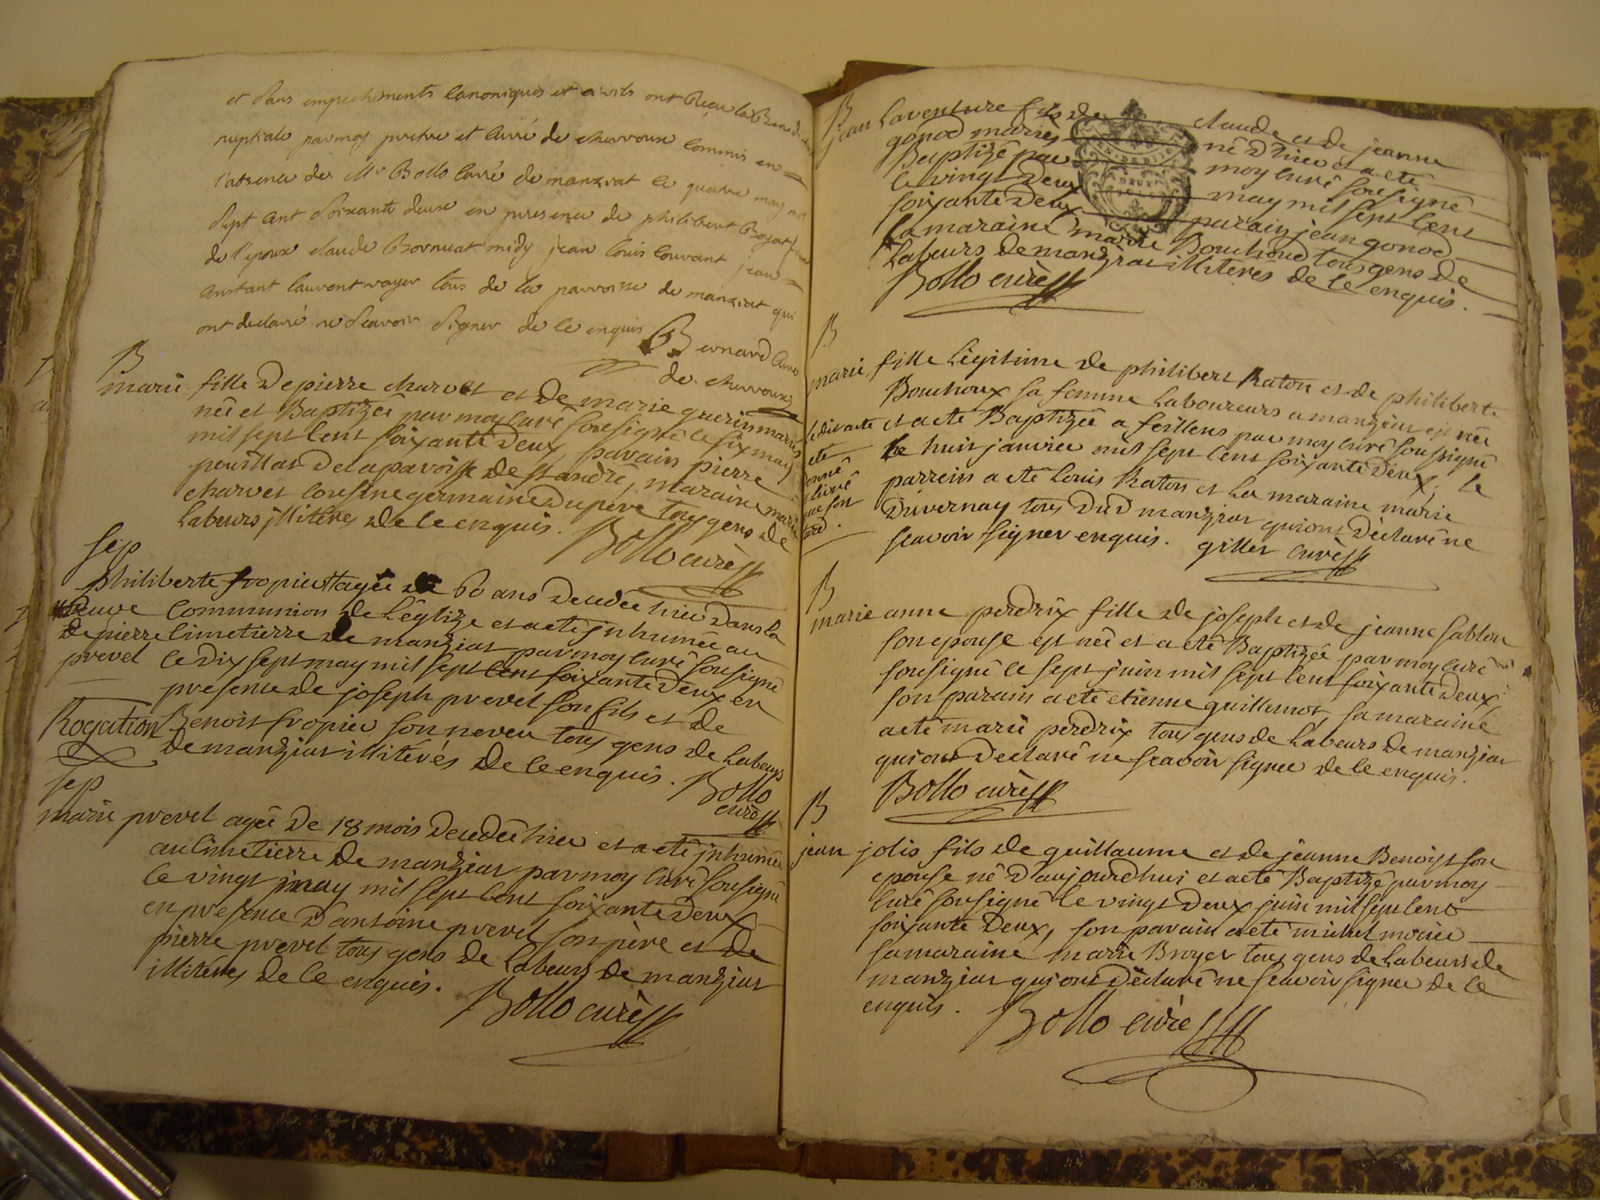 et sans empechements canoniques et civils ont Reçu la Bened
nuptiale par moy pretre et curé de chavoux commis en
l'absence de Mr Bollo curé de manziat le quatre may mil
sept cent soixante deux en presence de philibert Bojat
de l'epoux claude Bornuat midy jean louis louvant jean
constant laurent voyer tous de la parroisse de manziat qui
ont declaré ne scavoir signer de ce enquis
Bernard curé
de chavoux
B
marie fille de pierre charvet et de marie guerin mariés
née et Baptizée par moy curé sousigné le six may
mil sept cent soixante deux, parain pierre
peuillat de la paroisse de st andré, maraine marie
charvet cousine germaine du père tous gens de
labeurs jllitérés de ce enquis. Bollo curé
sep
philiberte fropier agée de 60 ans decedée hier dans la
veuve communion de l'églize et a eté jnhumée au
de pierre cimetierre de manziat par moy curé sousigné
prevel le dix sept may mil sept cent soixante deux en
presence de joseph prevel son fils et de
Rogation Benoist fropier son neveu tous gens de labeurs
de manziat illitérés de ce enquis. Bollo
curé
sep
marie prevel agée de 18 mois decedée hier et a eté jnhumée
au cimetierre de manziat par moy curé sousigné
le vingt may mil sept cent soixante deux
en presence d'antoine prevel son père et de
pierre prevel tous gens de labeurs de manziat
illitérés de ce enquis.
Bollo curé
B
jean laventure fils de claude et de jeanne
gonod mariés né d'hier a eté
Baptizé par moy curé sousigné
le vingt deux may mil sept cent
soixante deux parain jean gonod
la maraine marie Bouchoud tous gens de
labeurs de manziat illiterés de ce enquis.
Bollo curé
B
marie fille légitime de philibert Raton et de philiberte
Bouchoux sa femme laboureurs a manziat est née
et a eté Baptizée a feillens par moy curé soussigné
le huit janvier mil sept cent soixante deux, le
parrein a eté louis Raton et la maraine marie
Duvernay tous dud manziat qui ont déclaré ne
scavoir signer enquis. gillet curé
le dit acte
eté
donné
curé
B
marie anne perdrix fille de joseph et de jeanne sablon
son epouse est née et a eté Baptizée par moy curé
sousigné le sept juin mil sept cent soixante deux
son parain a eté etienne guillemot, sa maraine
a eté marie perdrix tous gens de labeurs de manziat
qui ont declaré ne scavoir signer de ce enquis.
Bollo curé
B
jean jolis fils de guillaume et de jeanne Benoist son
epouse né d'aujourd'hui et a eté Baptizé par moy
curé sousigné le vingt deux juin mil sept cent
soixante deux, son parain a eté michel morier
sa maraine marie Broyer tous gens de labeurs de
manziat qui ont déclaré ne scavoir signer de ce
enquis.
Bollo curé